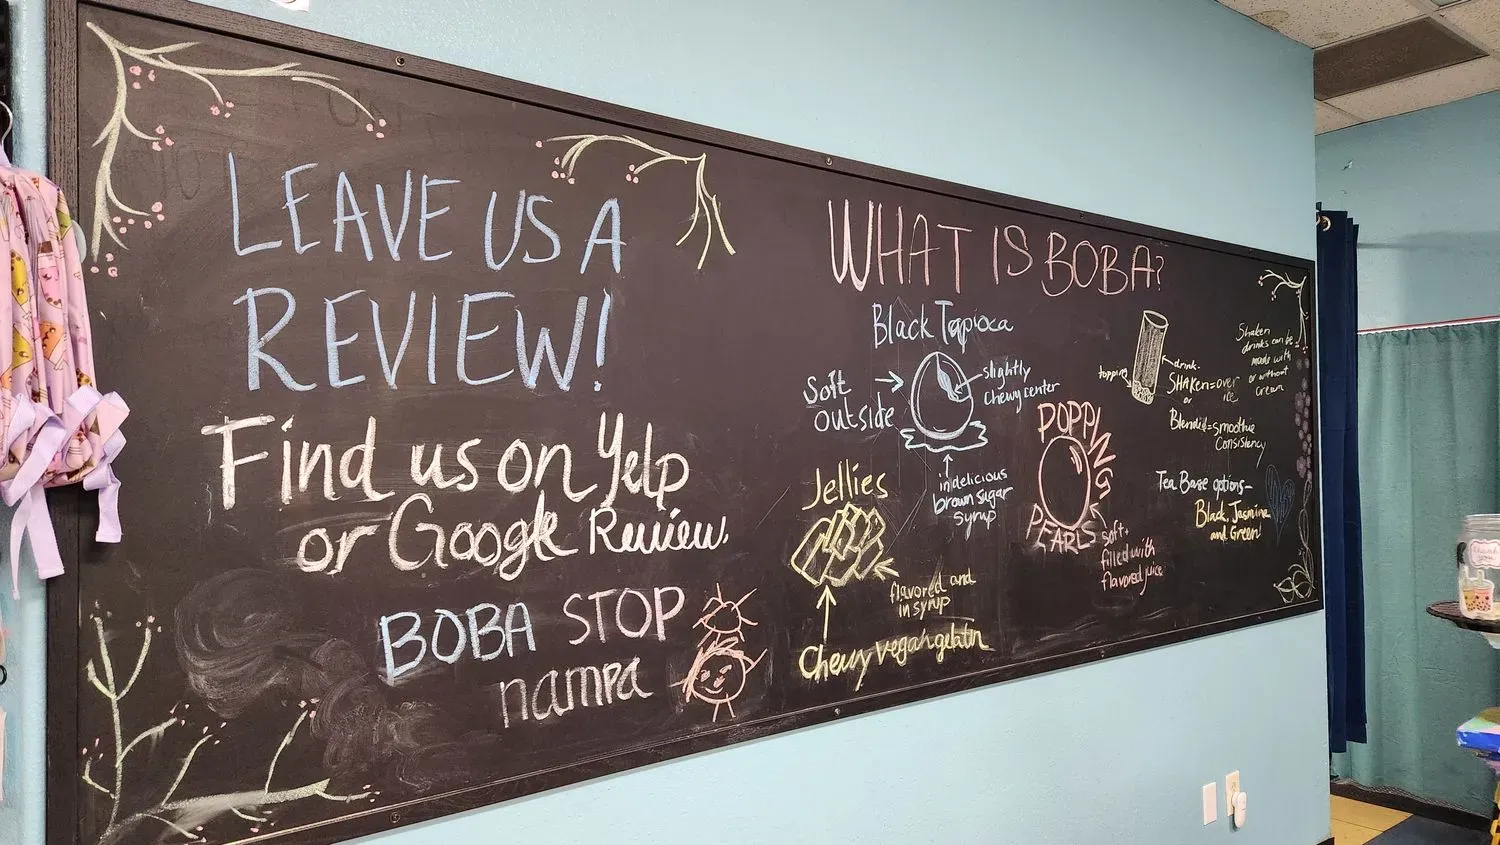 LEAVE US A
REVIEW!
Find us on Yelp
or Google Review.
BOBA STOP
nampa
WHAT IS BOBA?
Black Tapioca
Soft
outside
slightly
chewy center
in delicious
brown sugar
syrup
Jellies
flavored and
in syrup
Chewy vegan gelatin
POPPING
PEARLS
soft,
filled with
flavored juice
topping
drink
SHAKEN = over
ice
or
Blended = smoothie
Consistency
Shaken
drinks can be
made with
or without
cream
Tea Base options-
Black, Jasmine
and Green!
thank
you